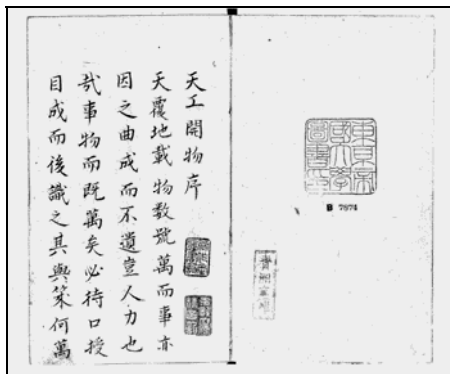 東京帝
國大學
圖書印
B 7874
天工開物序
天覆地載物數號萬而事亦
因之曲成而不遺豈人力也
哉事物而既萬矣必待口授
目成而後識之其與幾何萬